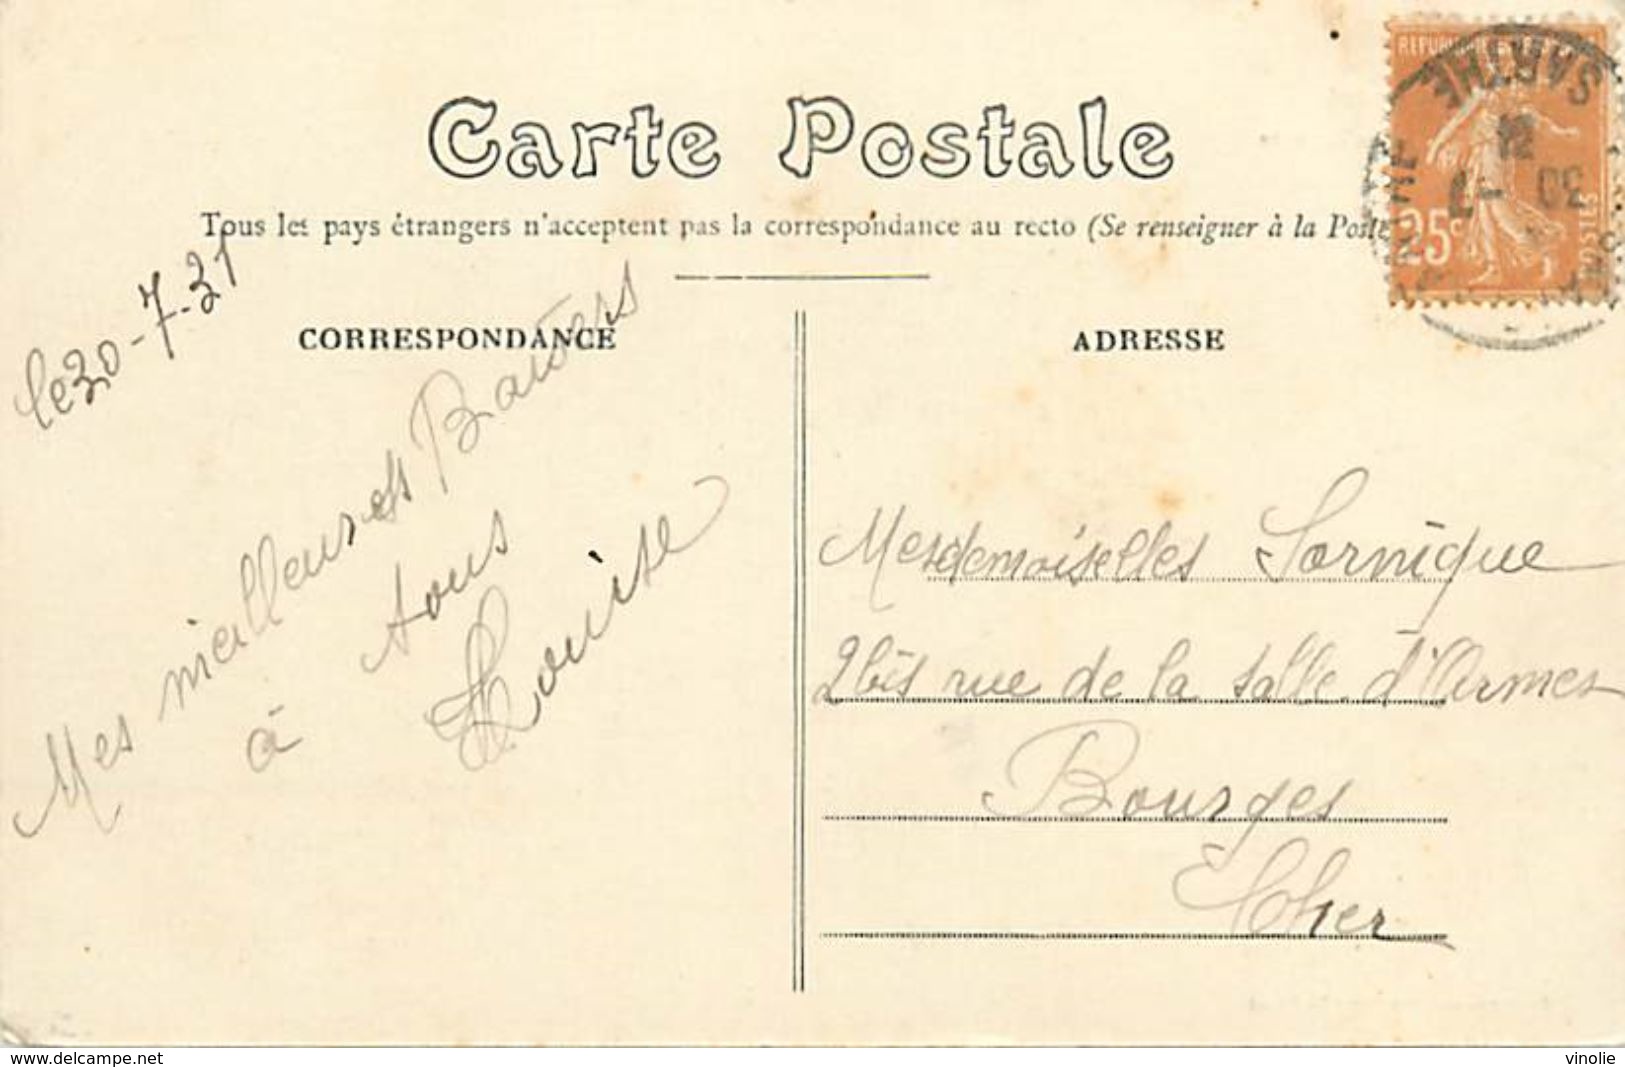 Carte Postale
Tous les pays étrangers n'acceptent pas la correspondance au recto (Se renseigner à la Poste
CORRESPONDANCE
le 30-7-31
Mes meilleures Baisers
à tous
Louise
ADRESSE
Mesdemoiselles Sornique
2bis rue de la Salle d'Armes
Bourges
Cher
25c
POSTES
SARTHE
30 -7
31
www.delcampe.net
vinolie